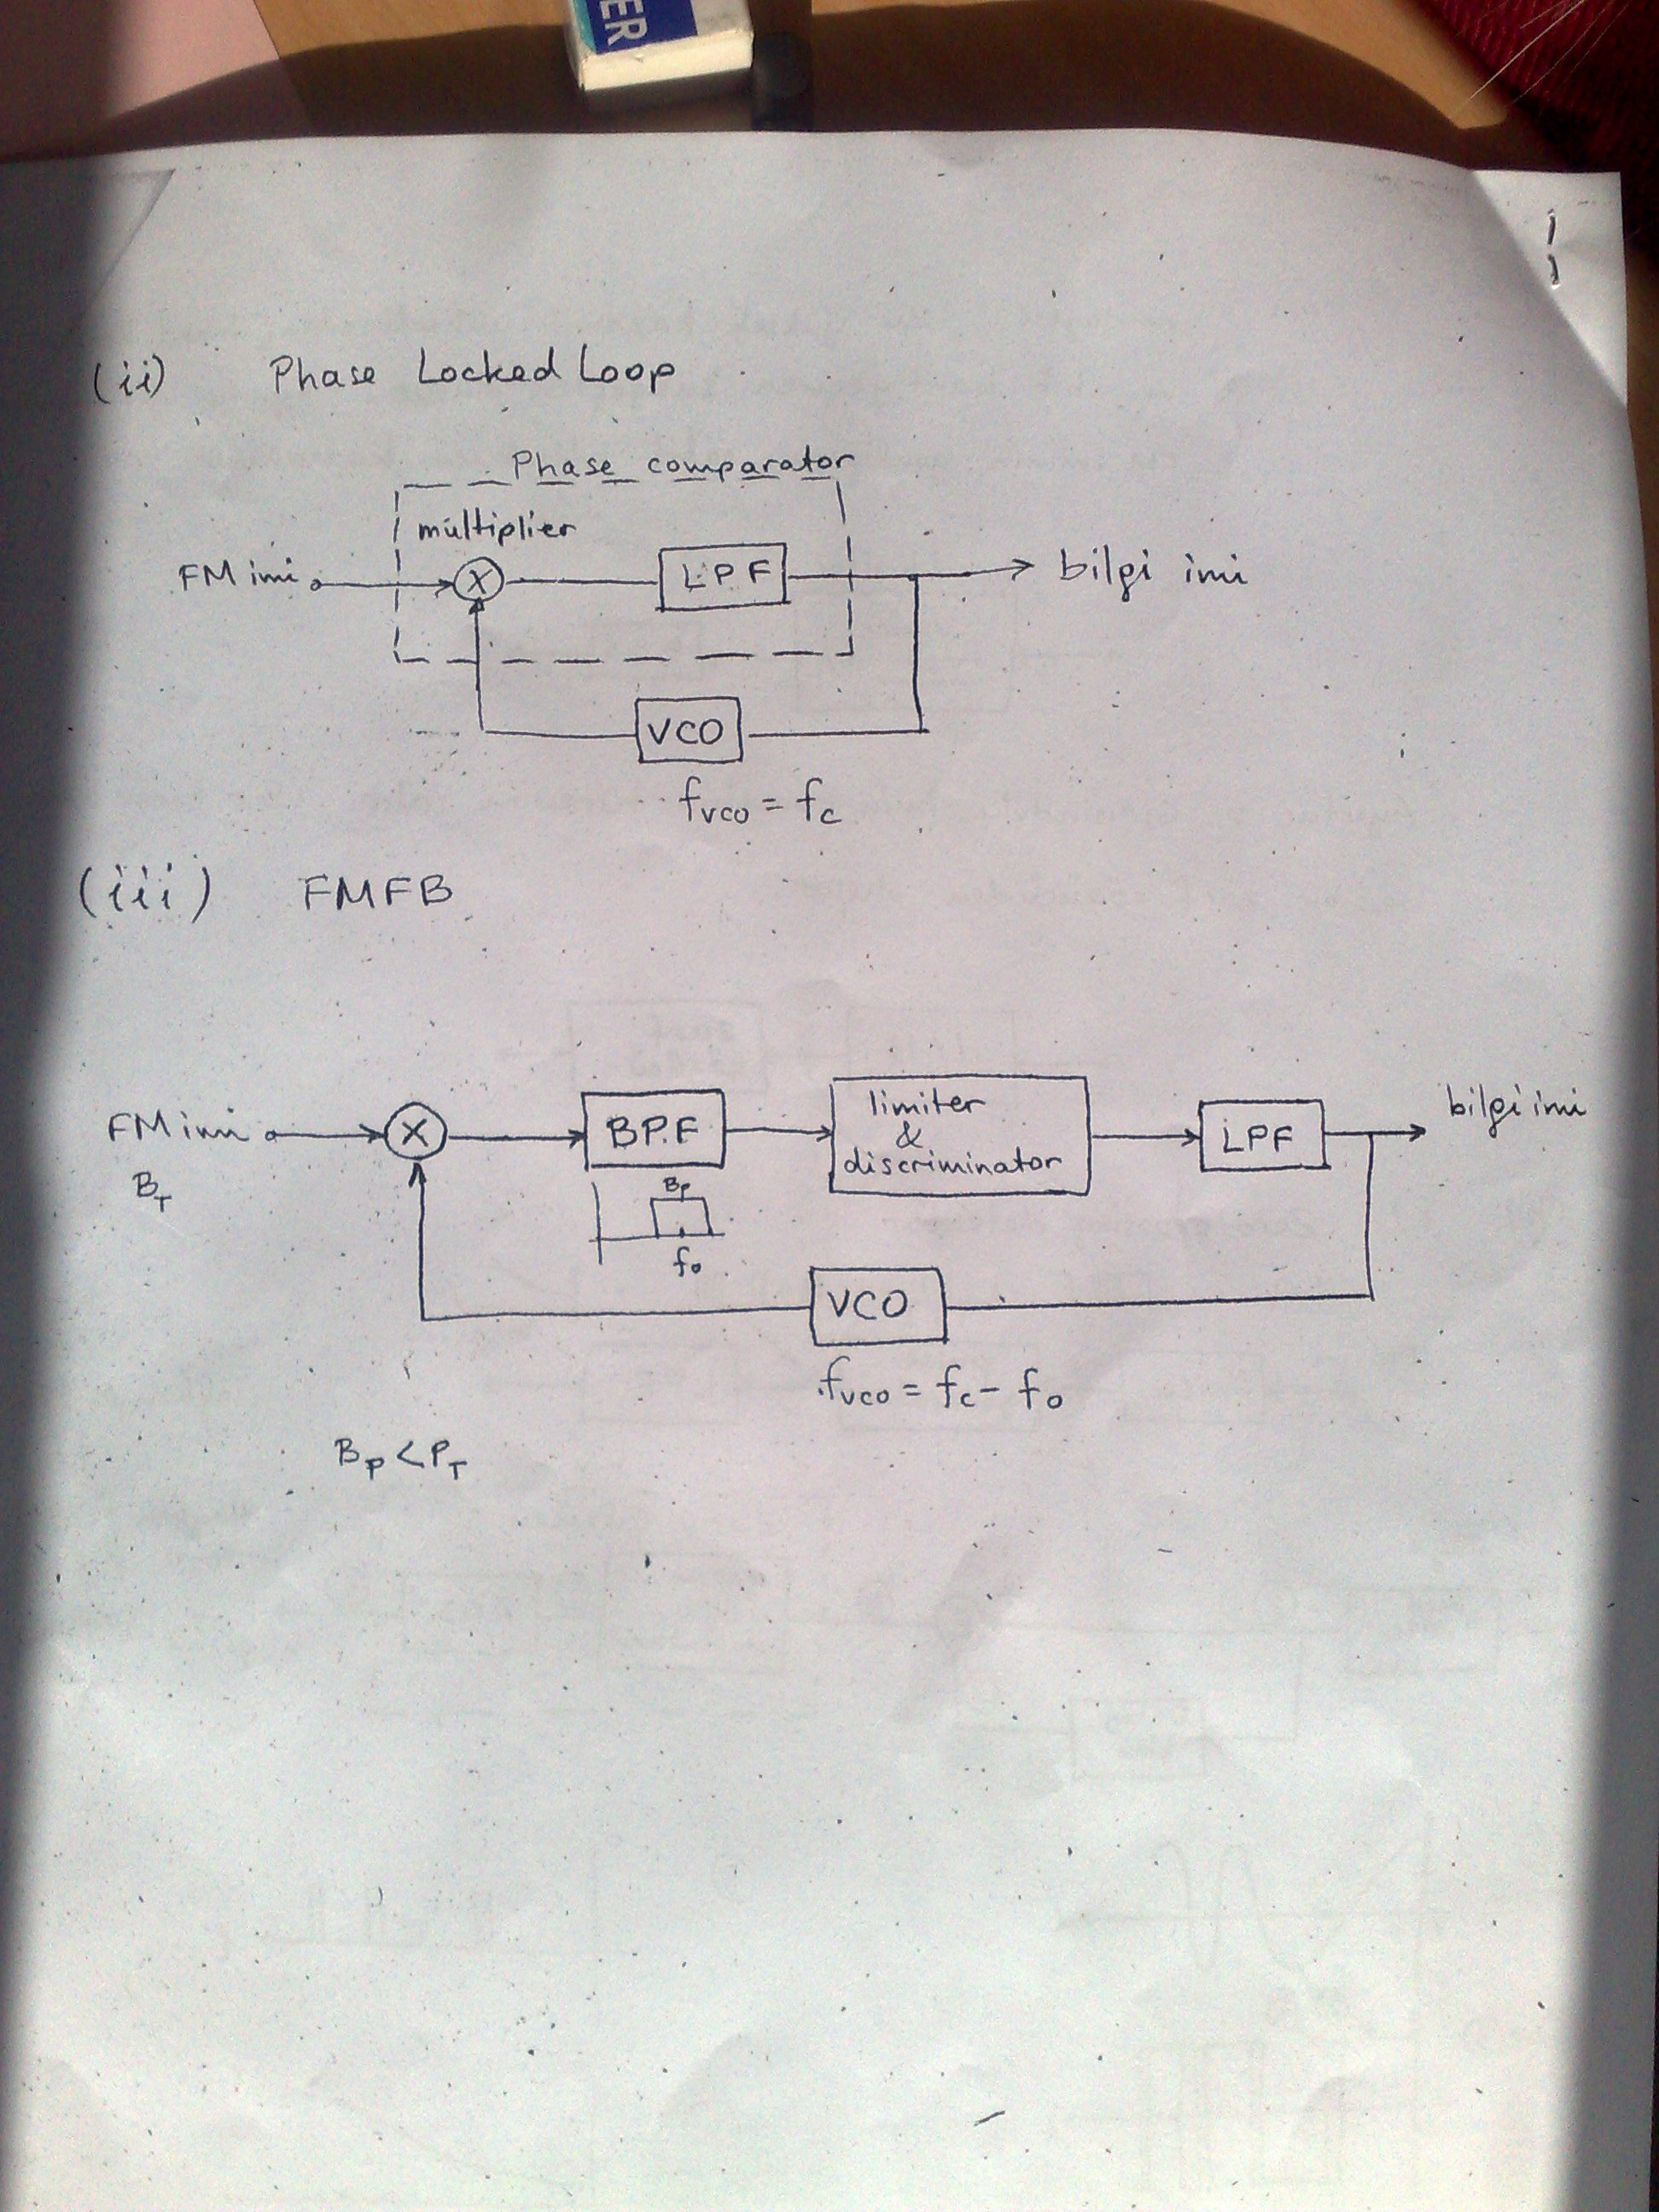 ER
(ii) Phase Locked Loop
Phase comparator
multiplier
FM imi X LPF bilgi imi
VCO
fvco = fc
(iii) FMFB
FM imi X B.P.F limiter & discriminator LPF bilgi imi
BT
Bp
fo
VCO
fvco = fc - fo
Bp < PT